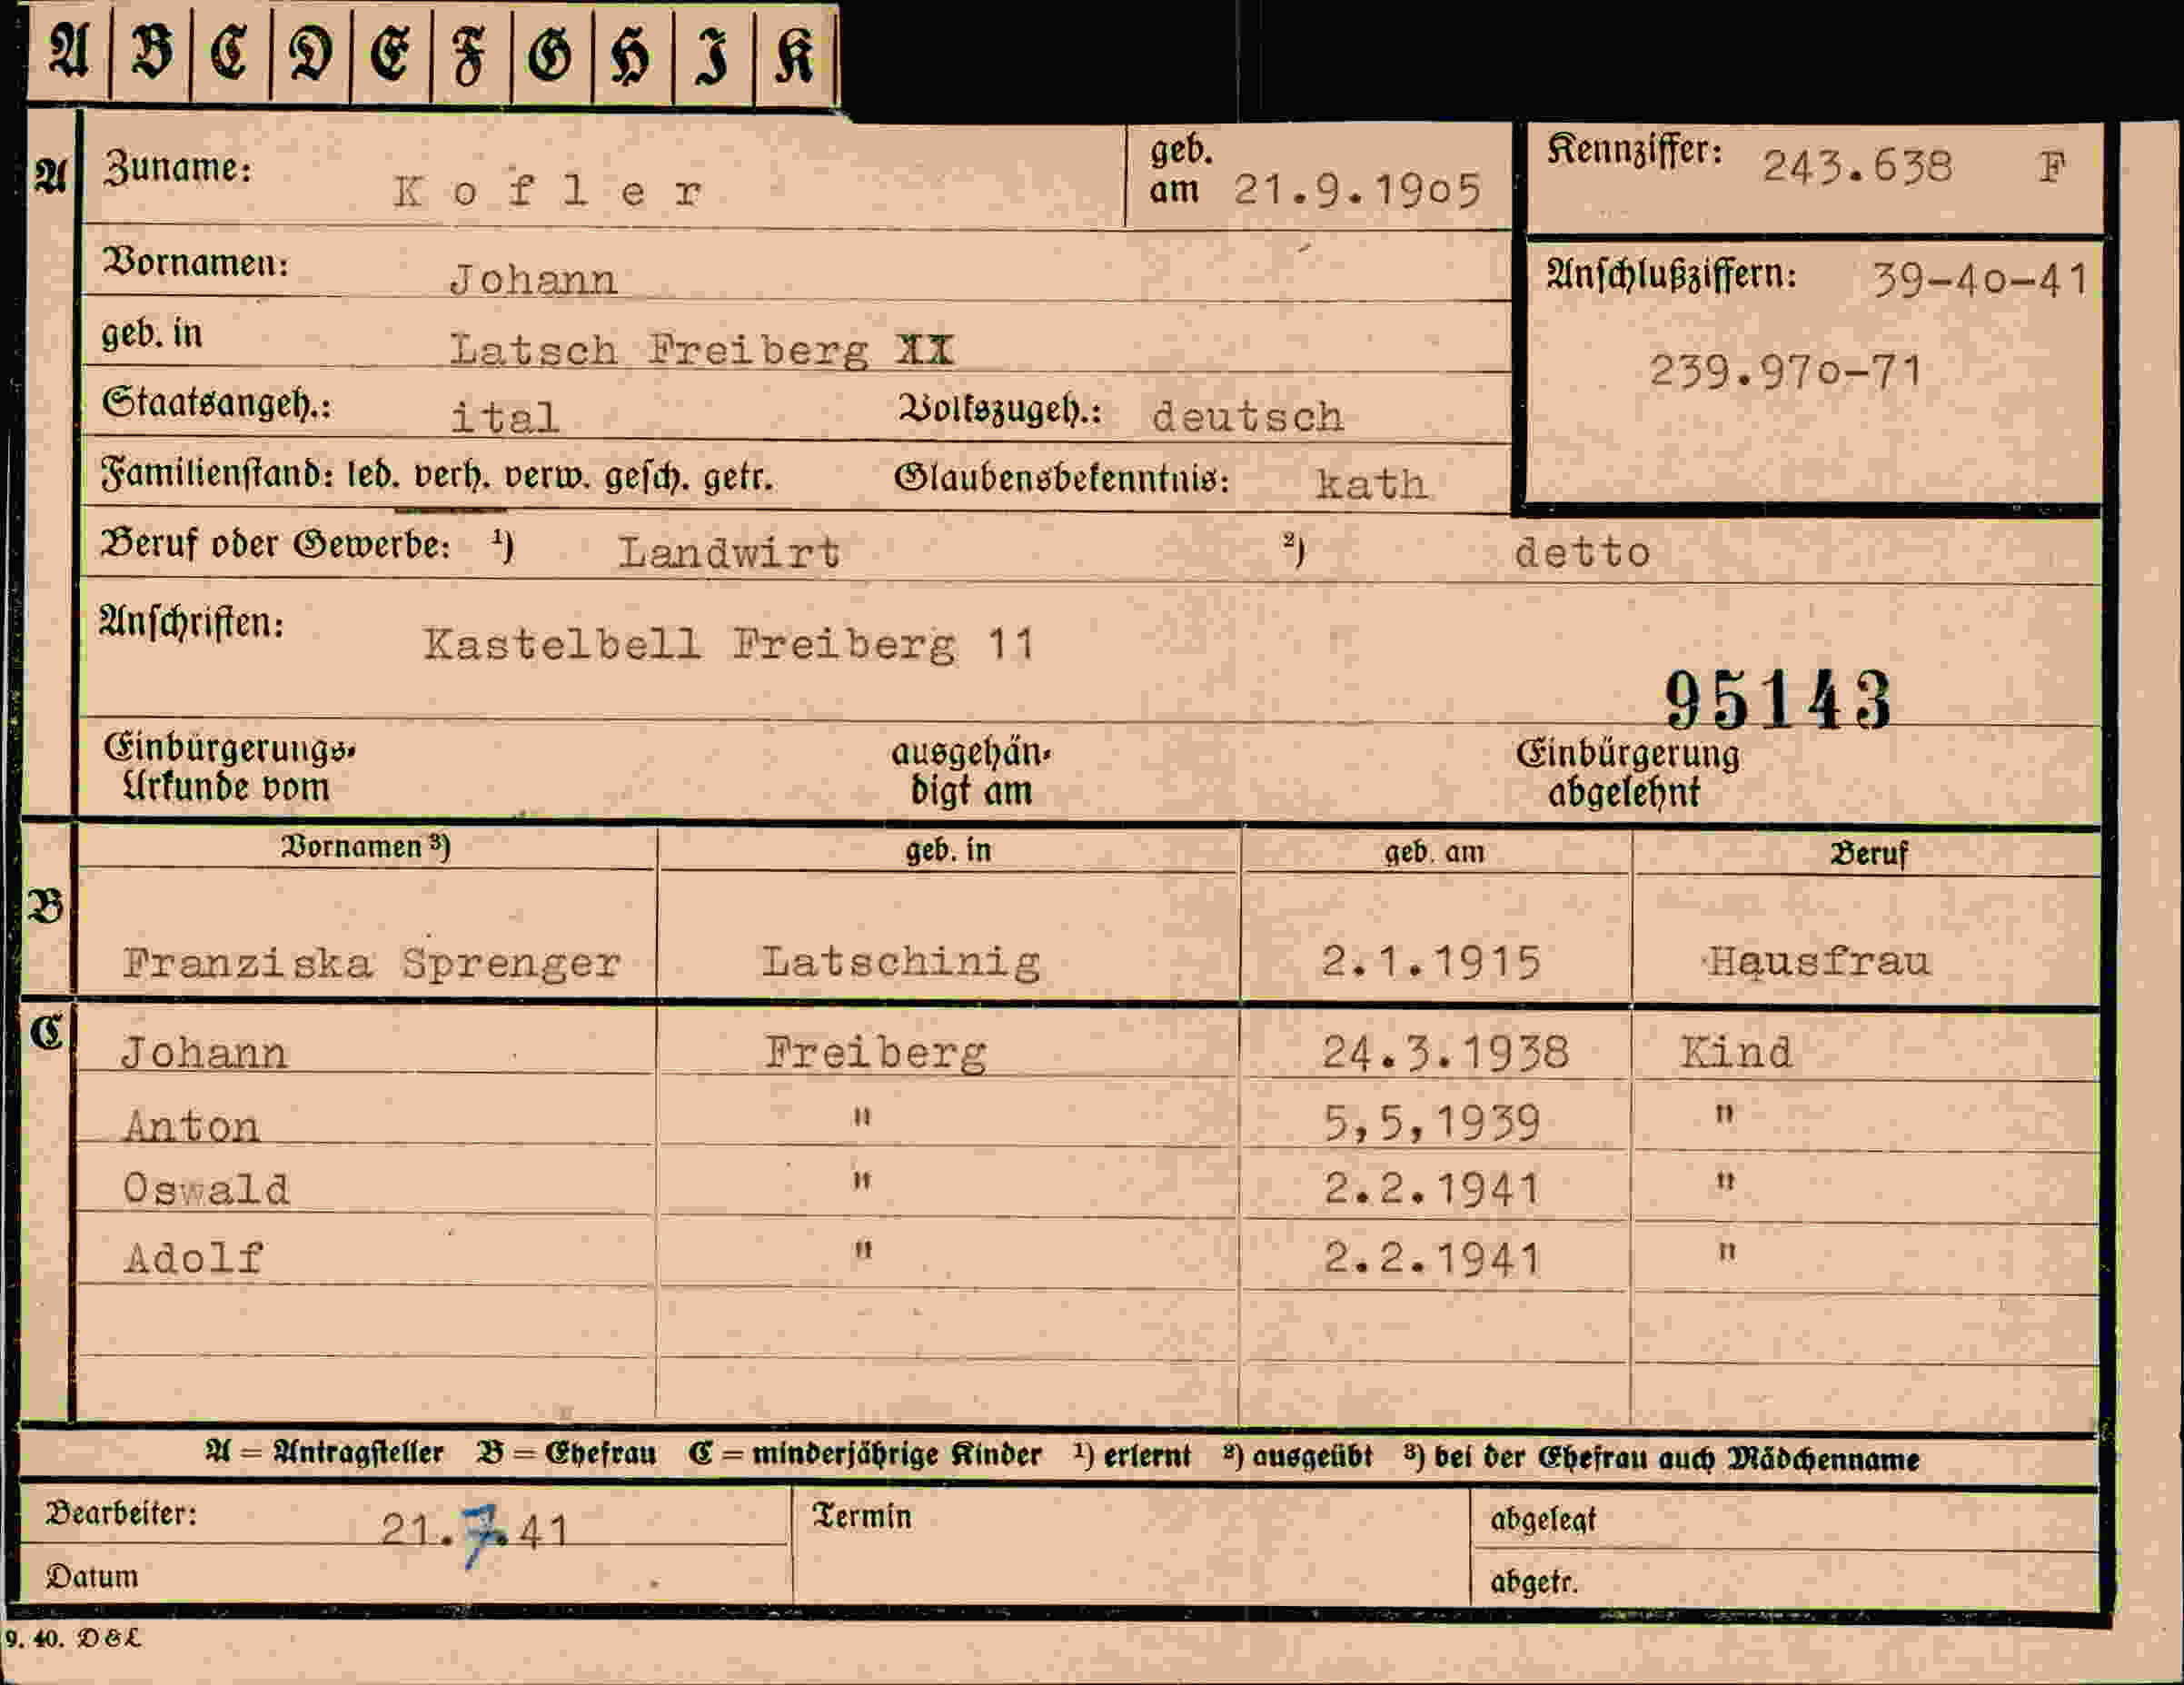 A B C D E F G H I K
A Zuname: Kofler geb. am 21.9.1905 Kennziffer: 243.638 F
Vornamen: Johann Anschlußziffern: 39-40-41
geb. in Latsch Freiberg 239.970-71
Staatsangeh.: ital Volkszugeh.: deutsch
Familienstand: led. verh. verw. gesch. getr. Glaubensbekenntnis: kath
Beruf oder Gewerbe: ¹) Landwirt ²) detto
Anschriften: Kastelbell Freiberg 11
95143
Einbürgerungs- ausgehän- Einbürgerung
Urkunde vom digt am abgelehnt
Vornamen ³) geb. in geb. am Beruf
B
Franziska Sprenger Latschinig 2.1.1915 Hausfrau
C Johann Freiberg 24.3.1938 Kind
Anton " 5,5,1939 "
Oswald " 2.2.1941 "
Adolf " 2.2.1941 "
A = Antragsteller B = Ehefrau C = minderjährige Kinder ¹) erlernt ²) ausgeübt ³) bei der Ehefrau auch Mädchenname
Bearbeiter: 21.7.41 Termin abgelegt
Datum abgetr.
9. 40. D&L